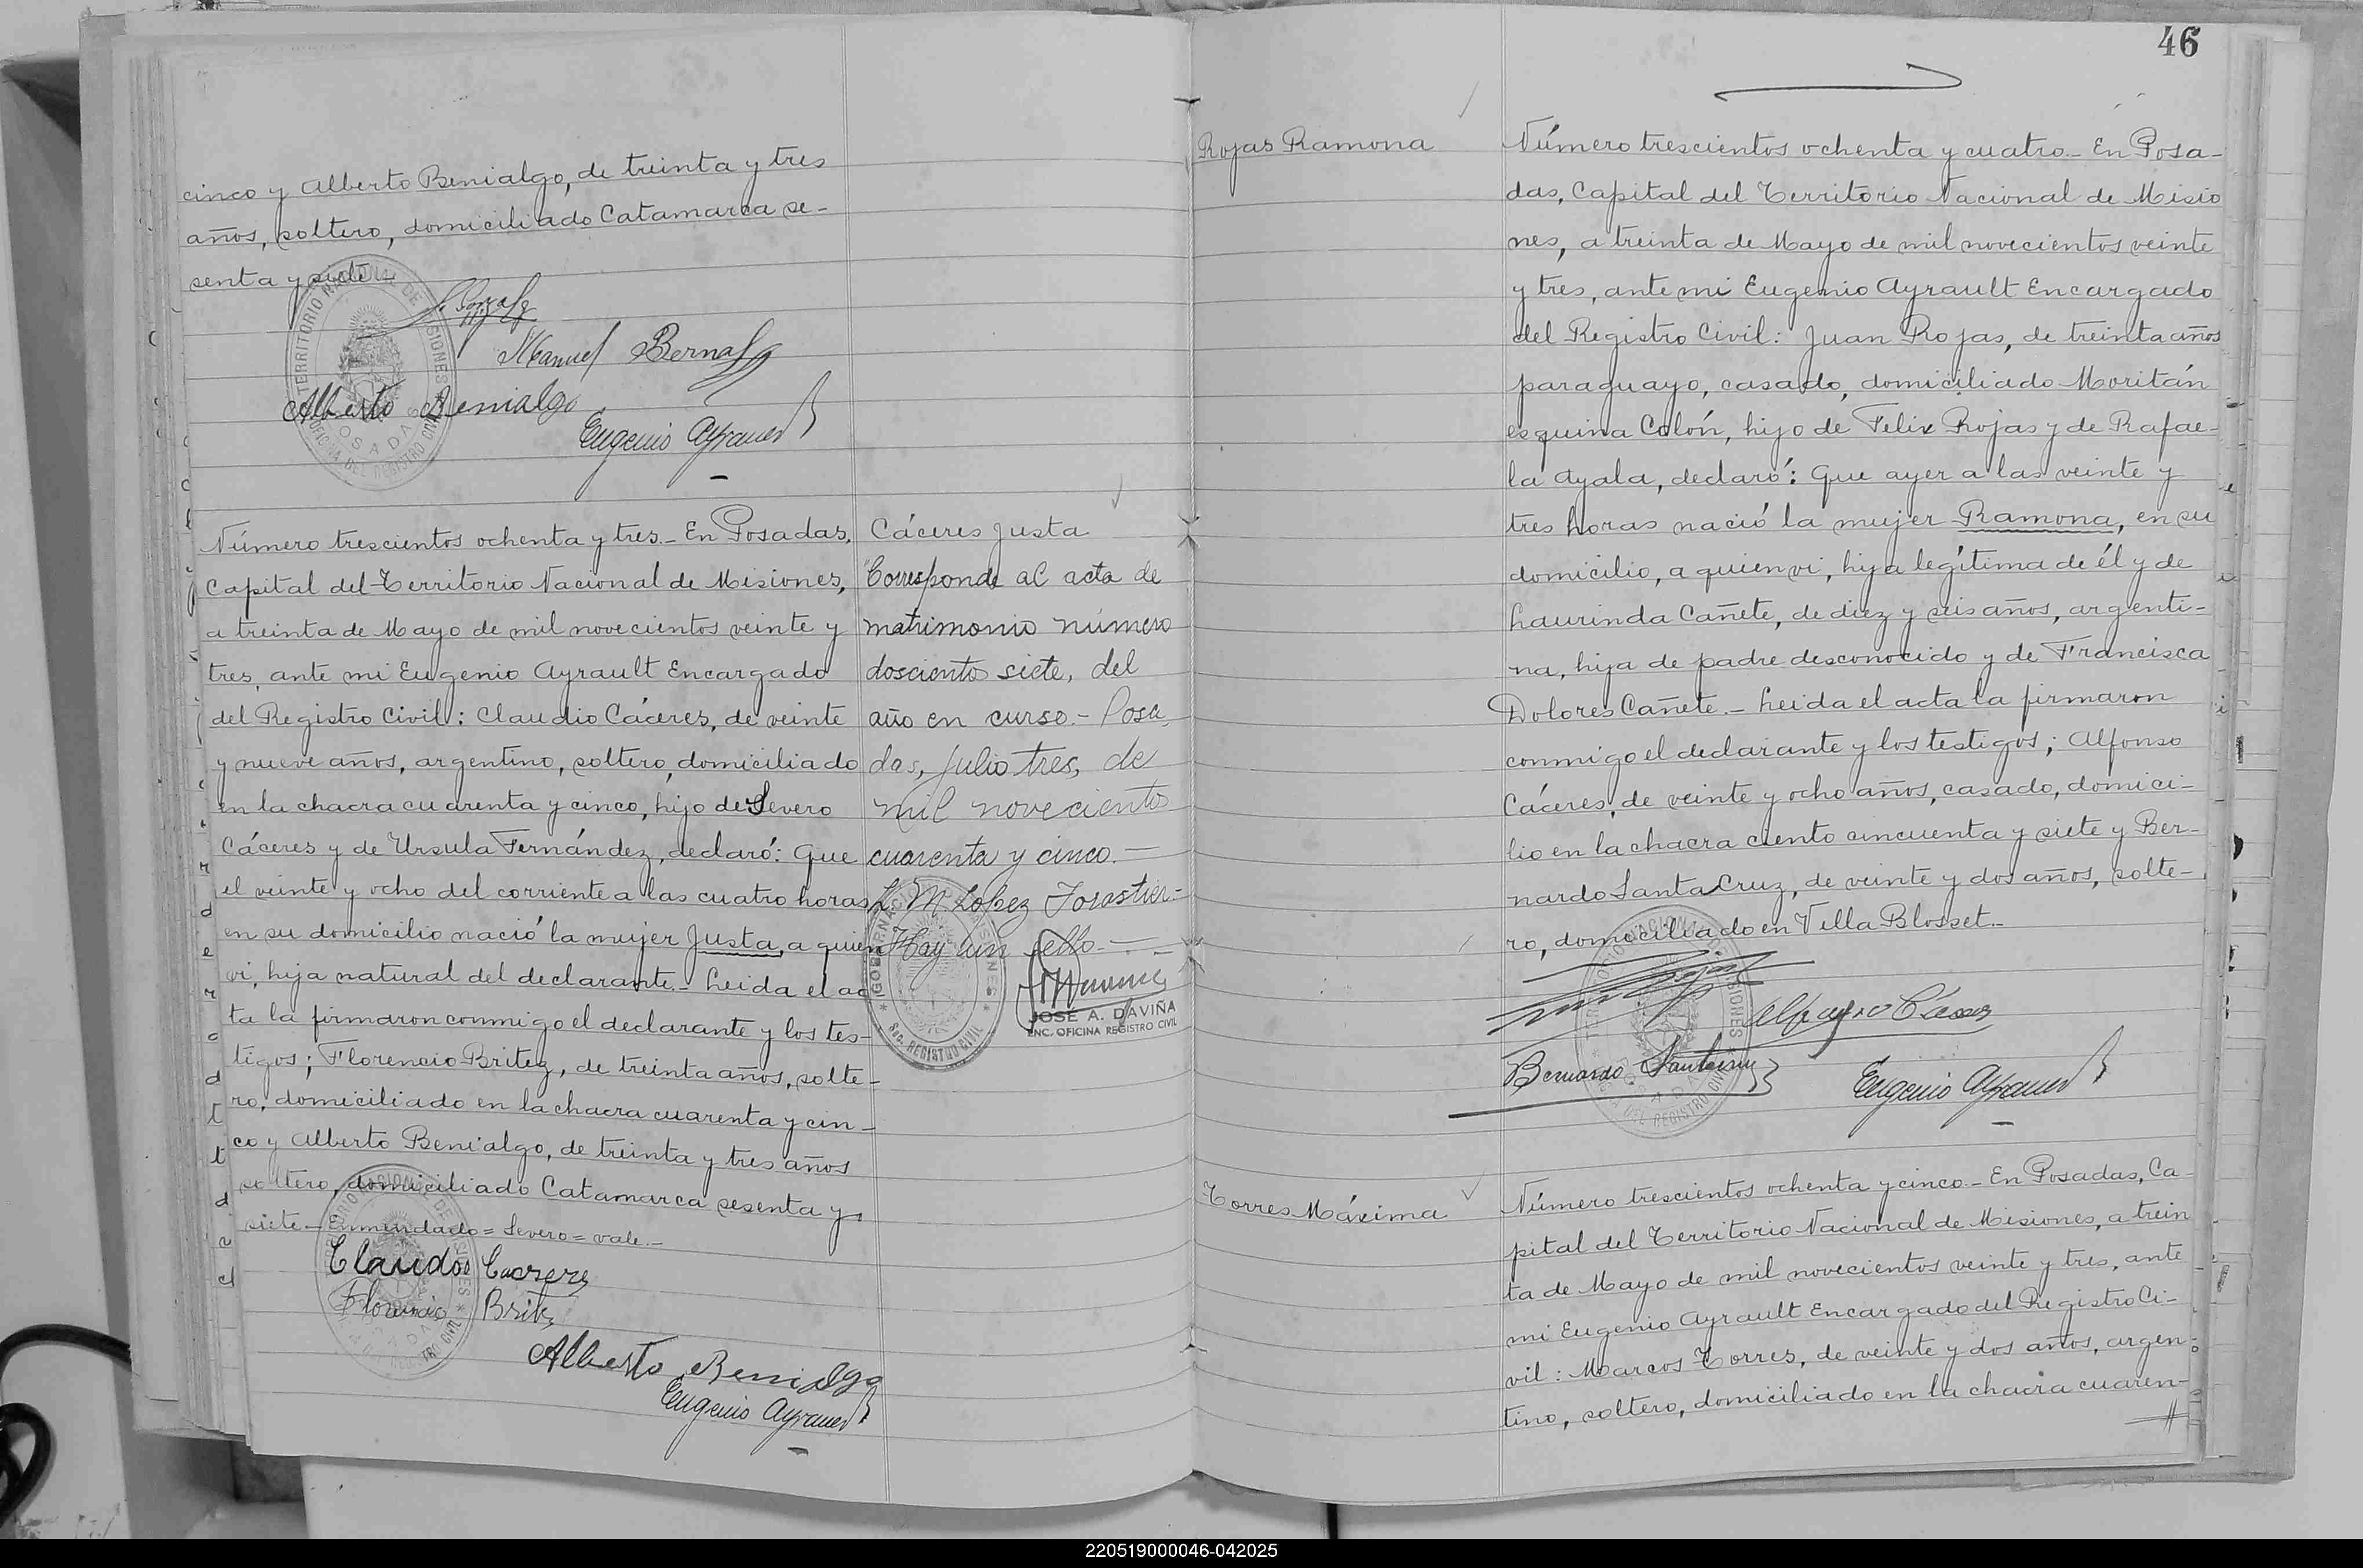 cinco y Alberto Benialgo, de treinta y tres
años, soltero, domiciliado Catamarca se-
senta y siete.-
Manuel Bernal
Alberto Benialgo
Eugenio Ayrault
Número trescientos ochenta y tres.- En Posadas,
Capital del Territorio Nacional de Misiones,
a treinta de Mayo de mil novecientos veinte y
tres, ante mi Eugenio Ayrault Encargado
del Registro Civil: Claudio Cáceres, de veinte
y nueve años, argentino, soltero, domiciliado
en la chacra cuarenta y cinco, hijo de Severo
Cáceres y de Ursula Fernández, declaró: Que
el veinte y ocho del corriente a las cuatro horas
en su domicilio nació la mujer Justa, a quien
vi, hija natural del declarante.- Leida el ac
ta la firmaron conmigo el declarante y los tes-
tigos; Florencio Britez, de treinta años, solte-
ro, domiciliado en la chacra cuarenta y cin-
co y Alberto Benialgo, de treinta y tres años
soltero, domiciliado Catamarca sesenta y
siete.- Enmendado = Severo = vale.-
Claudio Caceres
Florencio Britez
Alberto Benialgo
Eugenio Ayrault
Cáceres Justa
Corresponde al acta de
matrimonio número
doscientos siete, del
año en curso.- Posa
das, Julio tres, de
mil novecientos
cuarenta y cinco.-
L. M. Lopez Forastier.-
Hay un sello.-
JOSÉ A. DAVIÑA
ENC. OFICINA REGISTRO CIVIL
46
Rojas Ramona
Número trescientos ochenta y cuatro.- En Posa-
das, Capital del Territorio Nacional de Misio
nes, a treinta de Mayo de mil novecientos veinte
y tres, ante mi Eugenio Ayrault Encargado
del Registro Civil: Juan Rojas, de treinta años
paraguayo, casado, domiciliado Moritán
esquina Colón, hijo de Felix Rojas y de Rafae-
la Ayala, declaró: Que ayer a las veinte y
tres horas nació la mujer Ramona, en su
domicilio, a quien vi, hija legítima de él y de
Laurinda Cañete, de diez y seis años, argenti-
na, hija de padre desconocido y de Francisca
Dolores Cañete.- Leida el acta la firmaron
conmigo el declarante y los testigos; Alfonso
Cáceres, de veinte y ocho años, casado, domici-
lio en la chacra ciento cincuenta y siete y Ber-
nardo Santa Cruz, de veinte y dos años, solte-
ro, domiciliado en Villa Blosset.-
Alfonso Cáceres
Bernardo Santacruz
Eugenio Ayrault
Torres Máxima
Número trescientos ochenta y cinco.- En Posadas, Ca-
pital del Territorio Nacional de Misiones, a trein
ta de Mayo de mil novecientos veinte y tres, ante
mi Eugenio Ayrault Encargado del Registro Ci-
vil: Marcos Torres, de veinte y dos años, argen-
tino, soltero, domiciliado en la chacra cuaren-
220519000046-042025